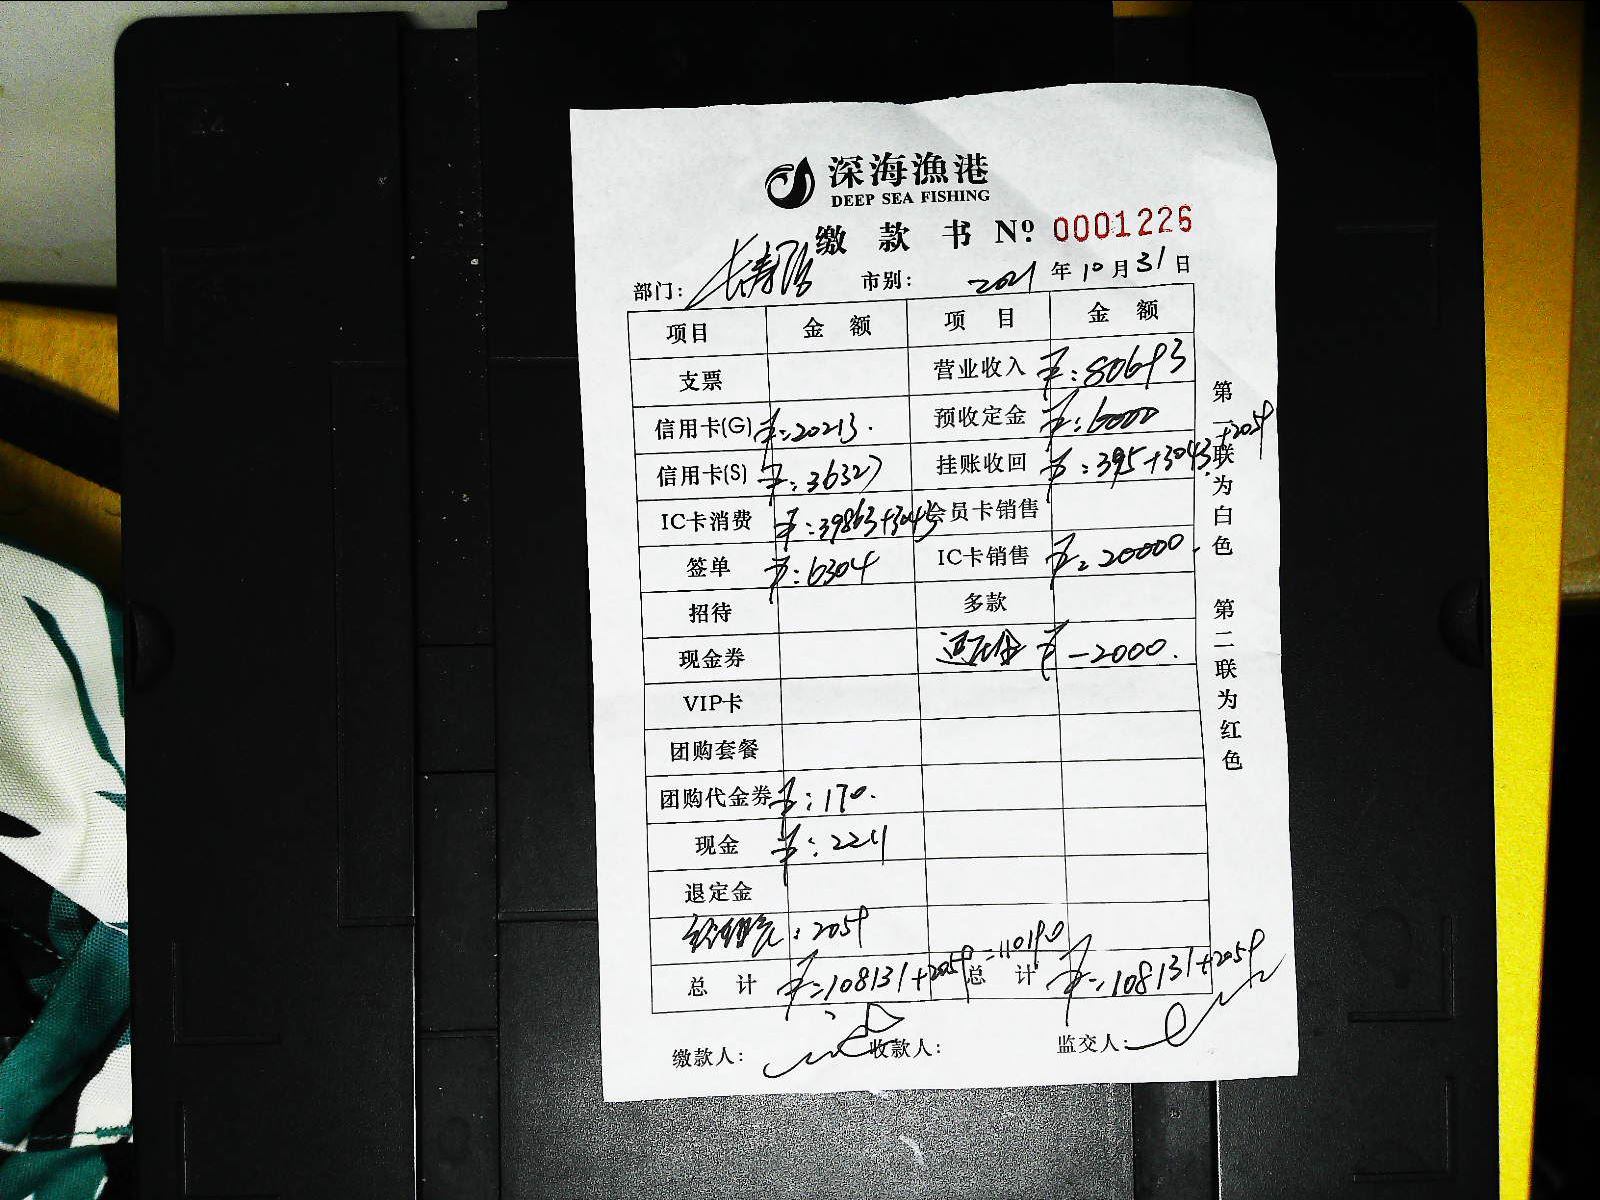 深海渔港
DEEP SEA FISHING
缴款书 Nº 0001226
部门: 长寿路 市别: 2021年10月31日
项目 金额 项目 金额
支票 营业收入 ¥:80693
信用卡(G) ¥:20213. 预收定金 ¥:6000
信用卡(S) ¥:36327 挂账收回 ¥:395+3043+2059
IC卡消费 ¥:39863+3043 会员卡销售
签单 ¥:6304 IC卡销售 ¥:20000.
招待 多款
现金券 退定金 ¥-2000.
VIP卡
团购套餐
团购代金券 ¥:170.
现金 ¥:2211
退定金
:2059
总计 ¥:108131+2059=110190 总计 ¥:108131+2059
缴款人: 收款人: 监交人:
第一联为白色 第二联为红色